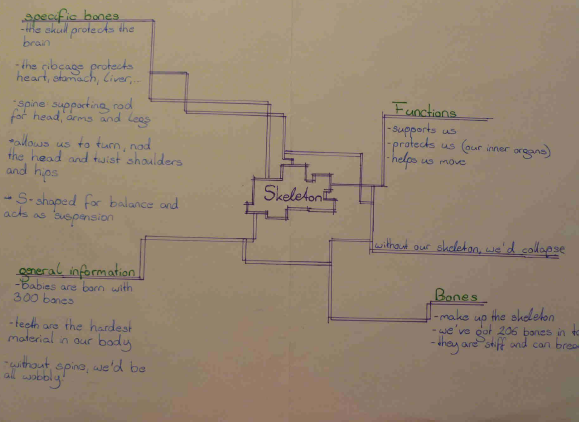 specific bones
-the skull protects the
brain
-the ribcage protects
heart, stomach, Liver,...
-spine supporting rod
for head, arms and Legs
→allows us to turn, nod
the head and twist shoulders
and hips
→ S-shaped for balance and
acts as suspension
general information
-Babies are born with
300 bones
-teeth are the hardest
material in our body
-without spine, we'd be
all wobbly
Skeleton
Functions
-supports us
-protects us (our inner organs)
-helps us move
without our skeleton, we'd collapse
Bones
-make up the skeleton
-we've got 206 bones in
-they are stiff and can